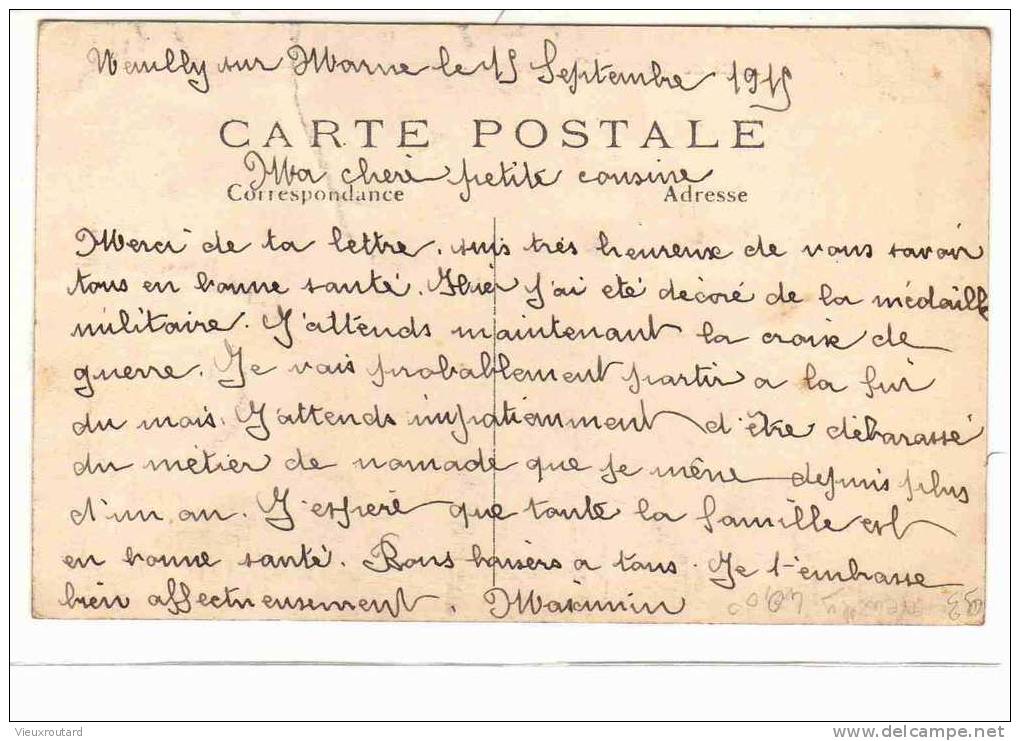 Neuilly sur Marne le 15 Septembre 1915
CARTE POSTALE
Ma cheré petité cousine
Correspondance Adresse
Merci de ta lettre. suis trés heureux de vous savoir
tous en bonne santé. Hier j'ai eté décoré de la médaille
militaire. J'attends maintenant la croix de
guerre. Je vais probablement partir a la fin
du mois. J'attends impatiemment d'être débarassé
du métier de nomade que je mène depuis plus
d'un an. J'esperé que touté la famille est
en bonne santé. Bons baisers a tous. Je t'embrasse
bien affectueusement. Maximin
Vieuxroutard
delcampe.net